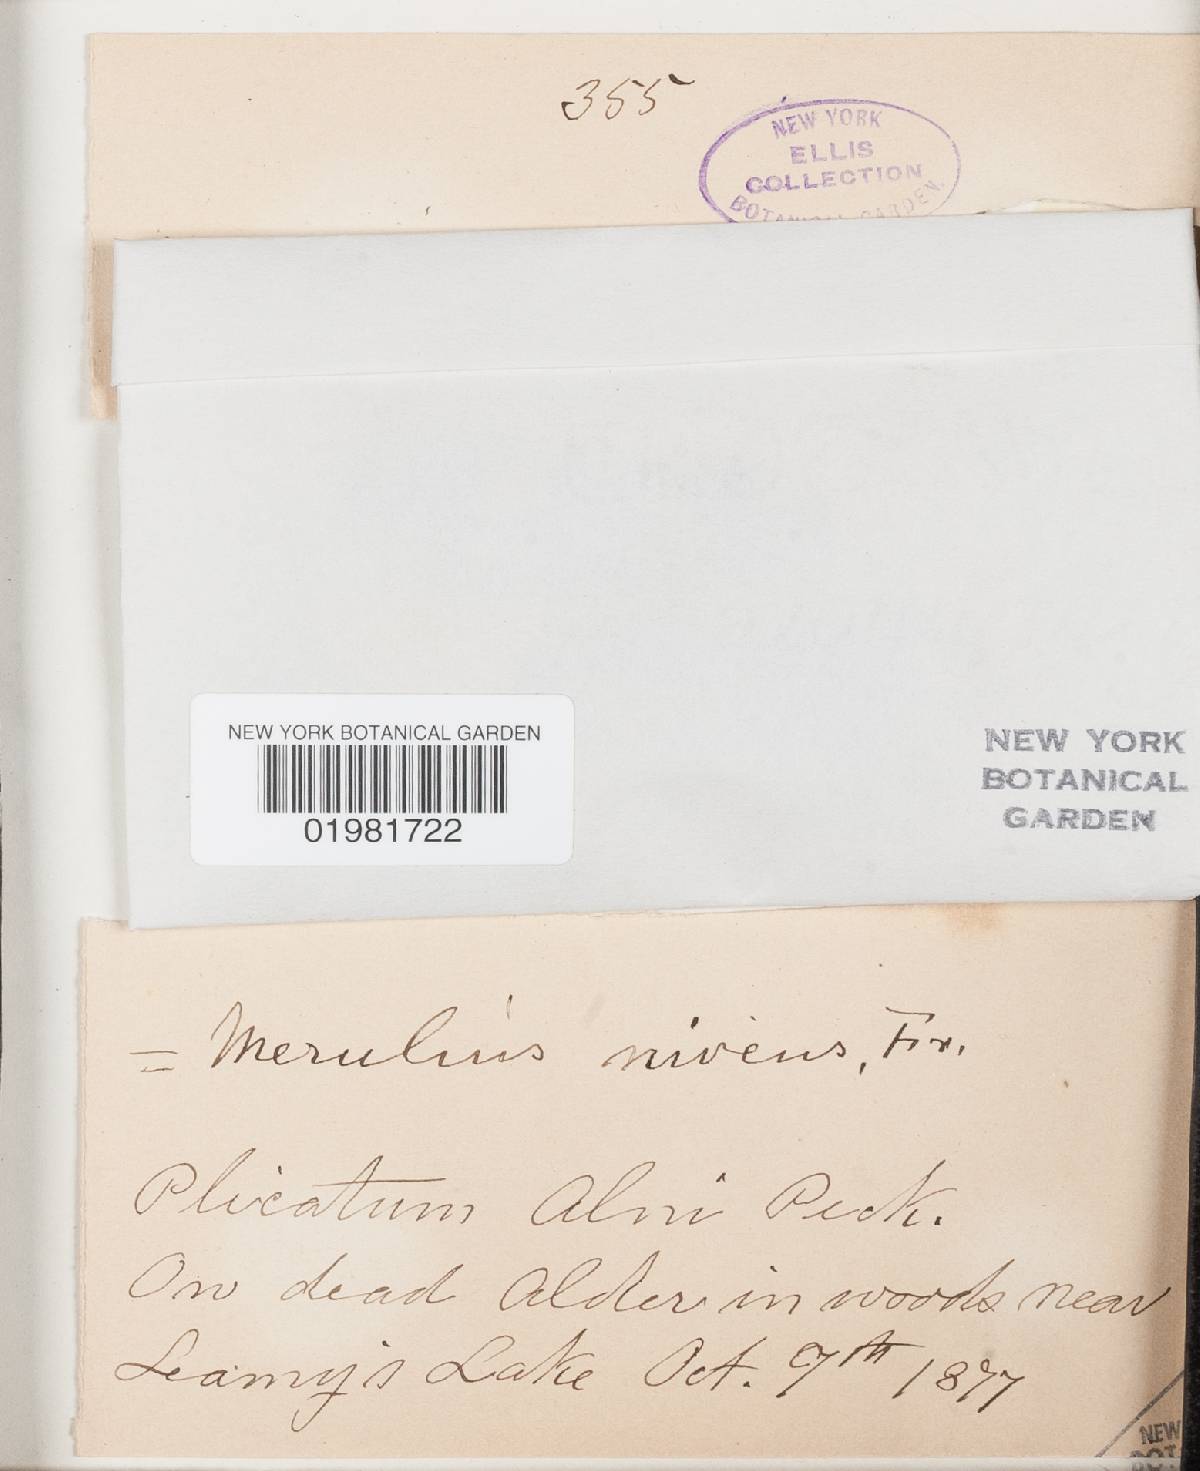 355
NEW YORK
ELLIS
COLLECTION
BOTANICAL GARDEN.
NEW YORK BOTANICAL GARDEN
01981722
NEW YORK
BOTANICAL
GARDEN
= Merulius niveus, Fr.
Plicatum Alni Peck.
On dead Alder in woods near
Leamy's Lake Oct. 7th 1877
NEW
BOT